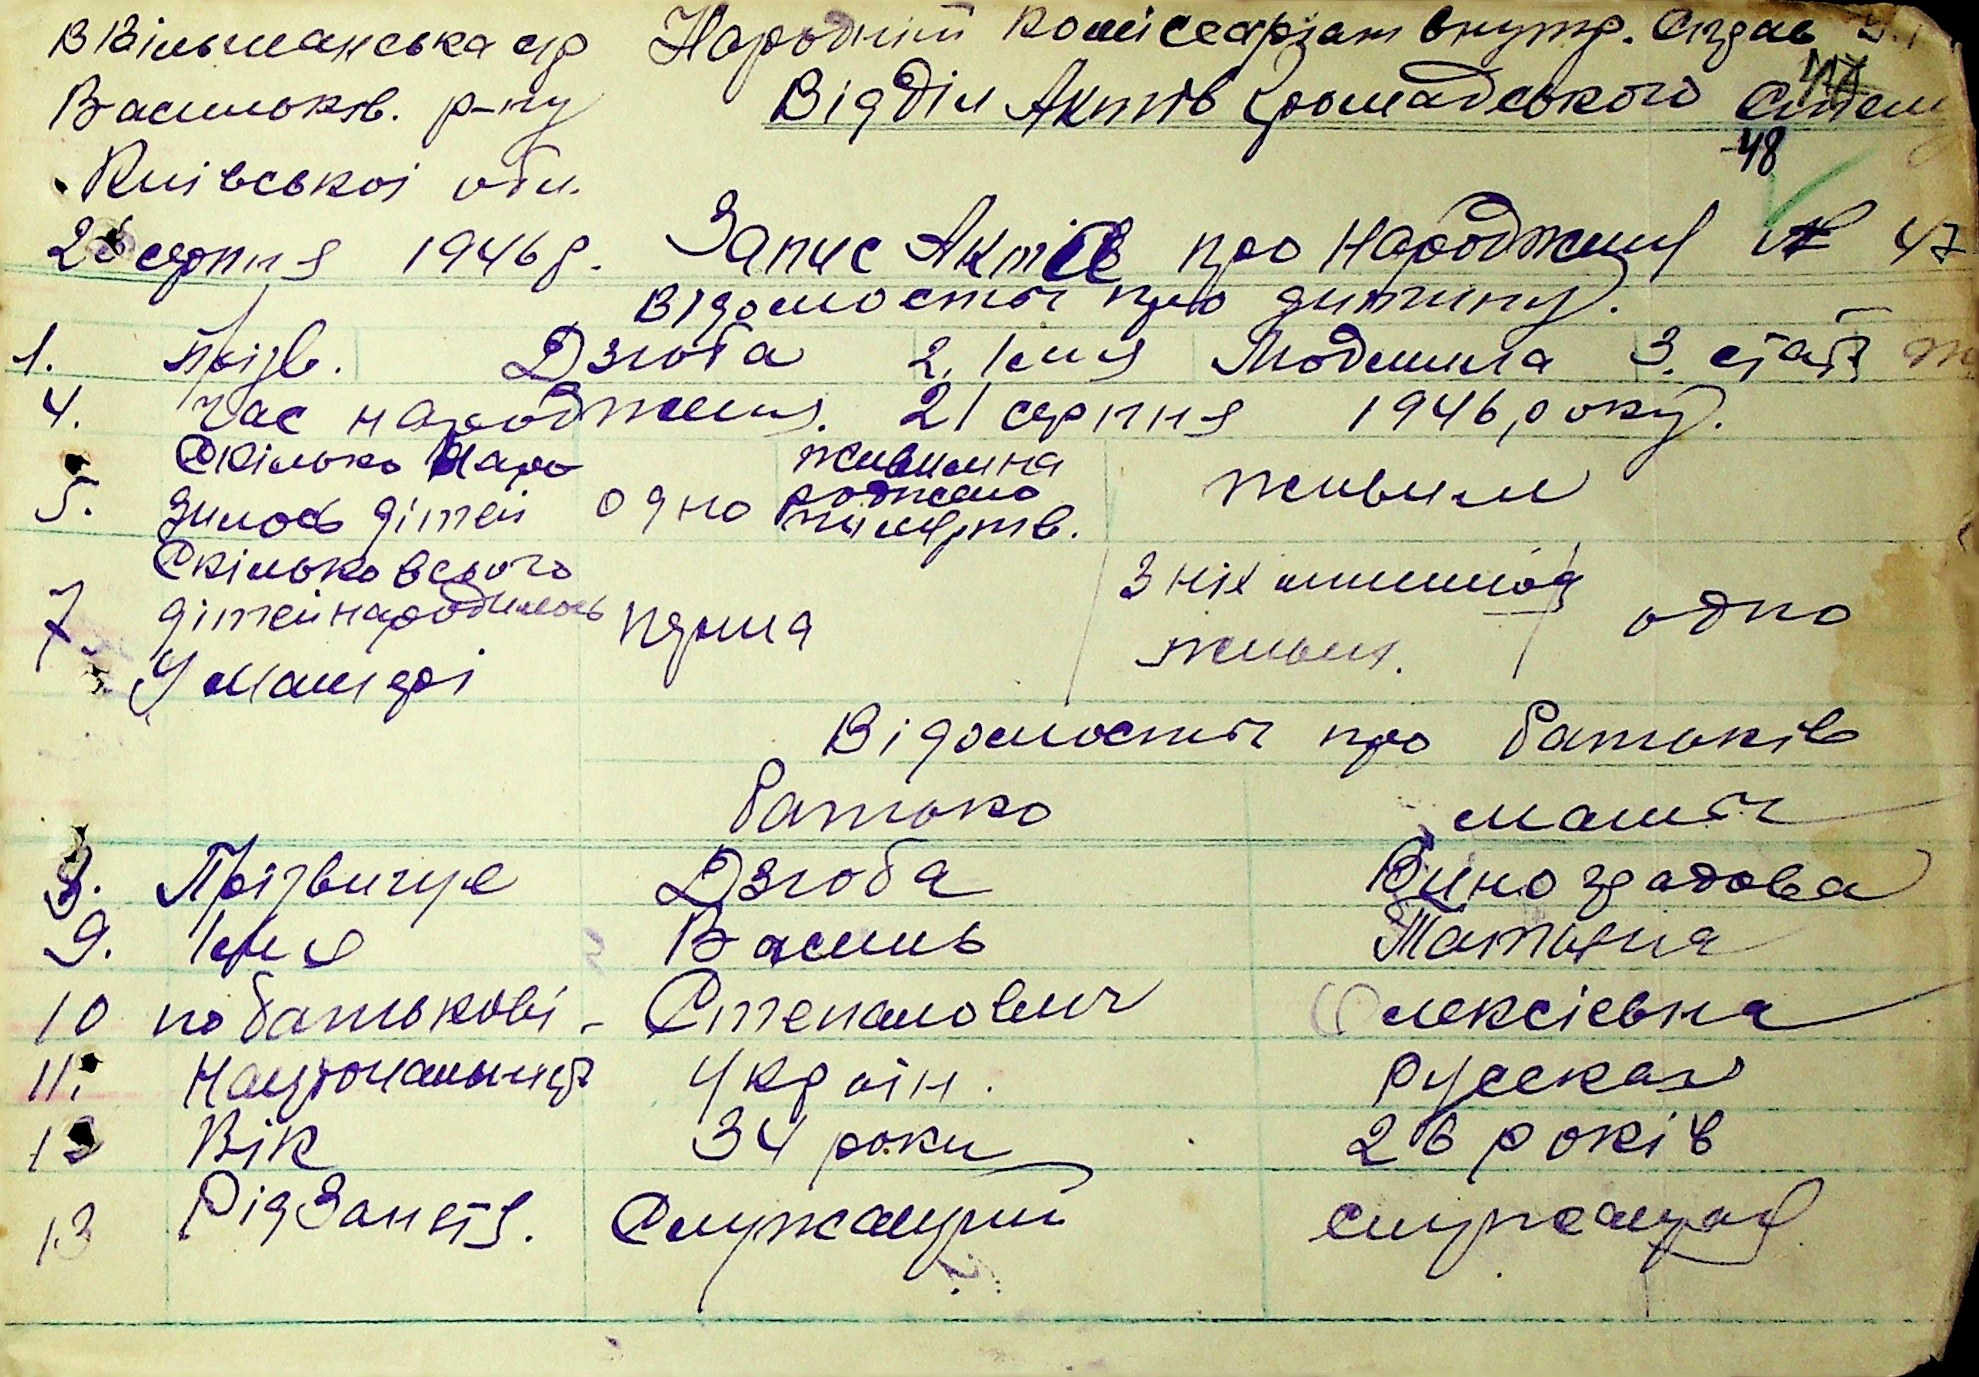 ВВільшанська с/р Народній комісаріат внутр. справ У.
Васильків. р-ну Відділ Актів Громадського Стану
Київської обл. 48
26 серпня 1946 р. Запис Актів про народження № 47
Відомості про дитину.
1. Прізв. Дзюба 2. Імя Людмила 3. стать ж
4. Час народження. 21 серпня 1946 року.
5. Скілько наро дилось дітей одно живим на роджено чи мертв. живим
7. Скілько всього дітей народилось у матері перша з них лишилось живих. одно
Відомості про батьків
батько мати
8. Прізвище Дзюба Виноградова
9. Імя Василь Татьяна
10 по батькові - Степанович Олексієвна
11. Національність Україн. русская
12 Вік 34 роки 26 років
13 Рід Занятя. Служащий служащая